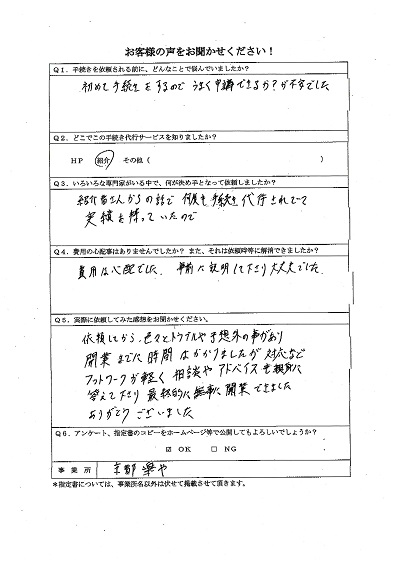 お客様の声をお聞かせください！
Q1．手続きを依頼される前に、どんなことで悩んでいましたか？
初めて手続をするので うまく申請できるか？が不安でした
Q2．どこでこの手続き代行サービスを知りましたか？
HP 紹介 その他（ ）
Q3．いろいろな専門家がいる中で、何が決め手となって依頼しましたか？
紹介者さんからの話で 何度も手続を代行されてて
実績を持っていたので
Q4．費用の心配事はありませんでしたか？ また、それは依頼時等に解消できましたか？
費用は心配でした。事前に説明して下さり大丈夫でした
Q5．実際に依頼してみた感想をお聞かせください。
依頼してから、色々とトラブルや予想外の事があり
開業までに時間はかかりましたが 対応など
フットワークが軽く 相談やアドバイスも親身に
答えて下さり 最終的に無事に開業できました
ありがとうございました
Q6．アンケート、指定書のコピーをホームページ等で公開してもよろしいでしょうか？
☑ OK □ NG
事業所 京都
*指定書については、事業所名以外は伏せて掲載させて頂きます。